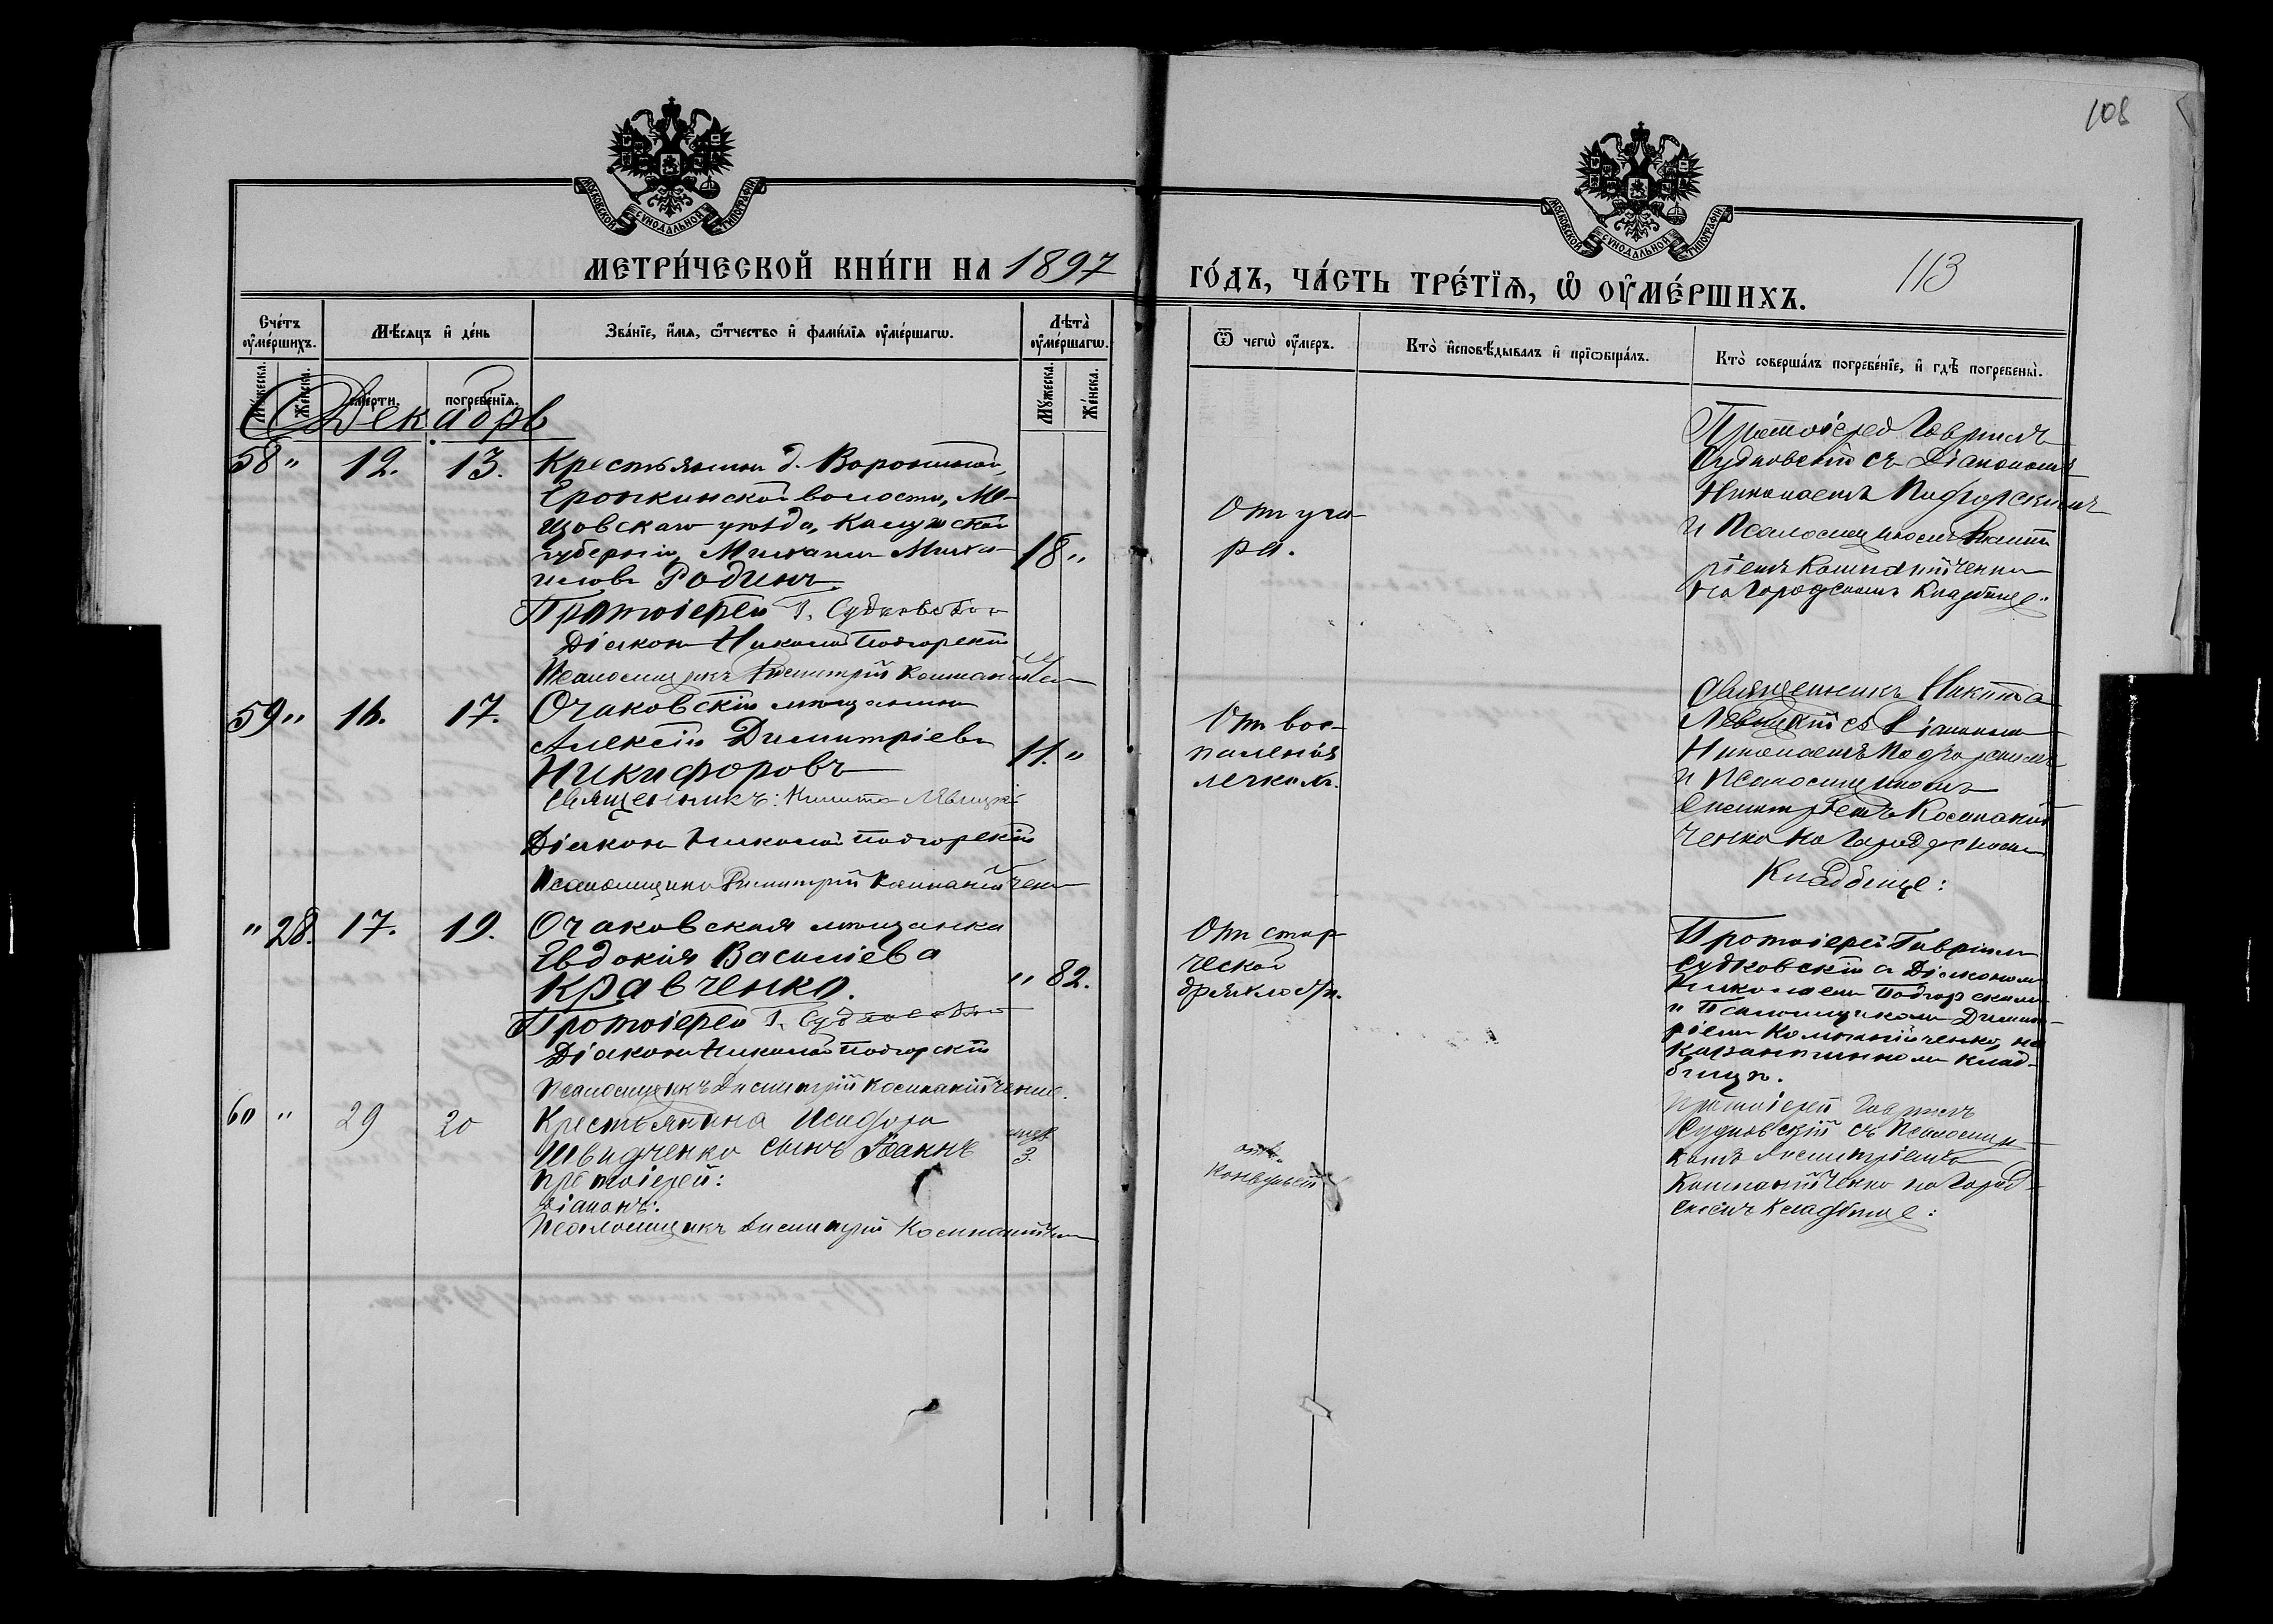 108
МОСКОВСКОЙ СѴНОДАЛЬНОЙ ТИПОГРАФІИ
МОСКОВСКОЙ СѴНОДАЛЬНОЙ ТИПОГРАФІИ
МЕТРИ́ЧЕСКОЙ КНИ́ГИ НА 1897
ГО́ДЪ, ЧА́СТЬ ТРЕ́ТІѦ, Ѡ҆ ОУ҆МЕ́РШИХЪ.
113
Сче́тъ оу҆ме́ршихъ.
Мꙋ́жеска.
Же́нска.
Мѣ́сяцъ и҆ де́нь
сме́рти.
погребе́нїя.
Зва́нїе, и҆́мя, ѻ҆́тчество и҆ фами́лїя оу҆ме́ршагѡ.
Лѣта̀ оу҆ме́ршагѡ.
Мꙋ́жеска.
Же́нска.
Ѿ чегѡ̀ оу҆́меръ.
Кто̀ и҆сповѣ́дывалъ и҆ прїѡбща́лъ.
Кто̀ соверша́лъ погребе́нїе, и҆ гдѣ̀ погребены̀.
Декабрь
58 " 12. 13.
Крестьянин д. Ворониной,
Еропкинской волости, Ме-
щовскаго уѣзда, Калужской
губерніи, Михаилъ Михаи-
иловъ Родинъ
18 "
Протоіерей Г. Судковскій
Діаконъ Николай Подгорскій
Псаломщикъ Димитрій Компанійченко
От уга-
ра.
Протоіерей Гавріилъ
Судковскій съ Діакономъ
Николаемъ Подгорскимъ
и Псаломщикомъ Димит
ріемъ Компанійченко
на Городскомъ Кладбище.
59 " 16. 17.
Очаковскій мѣщанинъ
Алексѣй Димитріевъ
Никифоровъ
11. "
Священникъ: Никита Левицкій
Діаконъ Николай Подгорскій
Псаломщикъ Димитрій Компанійченко
От вос-
паленія
легкихъ.
Священникъ Никита
Левицкій съ Діакономъ
Николаемъ Подгорскимъ
и Псаломщикомъ
Димитріемъ Компаній
ченко на Городскомъ
Кладбище:
" 28. 17. 19.
Очаковская мѣщанка
Евдокія Васильева
Кравченко.
" 82.
Протоіерей Г. Судковскій
Діаконъ Николай Подгорскій
Псаломщикъ Димитрій Компанійченко.
От стар-
ческой
дряхлости.
Протоіерей Гавріилъ
Судковскій с Діакономъ
Николаемъ Подгорскимъ
и Псаломщикомъ Димит-
ріемъ Компанійченко, на
Карантинномъ клад-
бищѣ.
60 " 29 30
Крестьянина Исидора
Швидченко сынъ Іоаннъ
3.
Протоіерей:
Діаконъ:
Псаломщикъ Димитрій Компанійченко
отъ
конвульсій
Протоіерей Гавріилъ
Судковскій съ Псаломщи
комъ Димитріемъ
Компанійченко на Город
скомъ Кладбище: